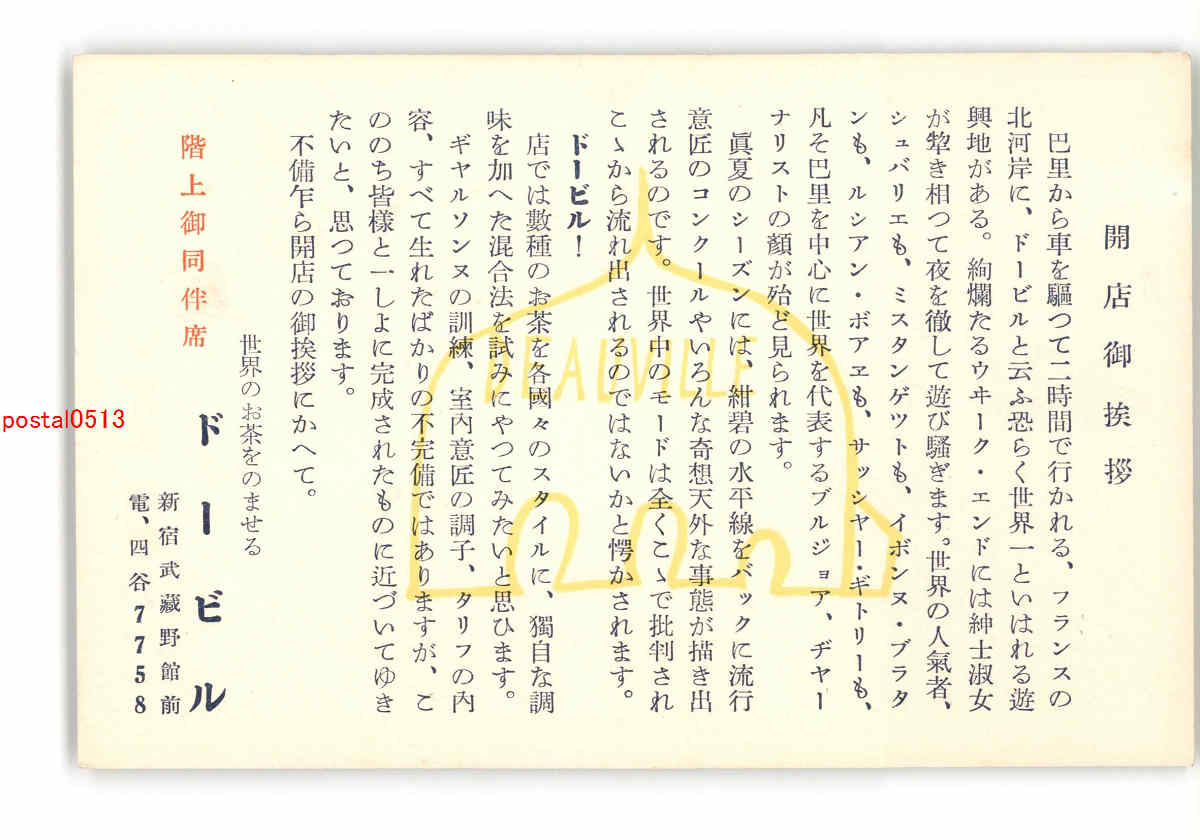 開店御挨拶
巴里から車を驅つて二時間で行かれる、フランスの
北河岸に、ドービルと云ふ恐らく世界一といはれる遊
興地がある。絢爛たるウヰーク・エンドには紳士淑女
が犂き相つて夜を徹して遊び騒ぎます。世界の人氣者、
シュバリエも、ミスタンゲツトも、イボンヌ・ブラタ
ンも、ルシアン・ボアヱも、サッシヤー・ギトリーも、
凡そ巴里を中心に世界を代表するブルジョア、ヂヤー
ナリストの顔が殆ど見られます。
眞夏のシーズンには、紺碧の水平線をバックに流行
意匠のコンクールやいろんな奇想天外な事態が描き出
されるのです。世界中のモードは全くこゝで批判され
こゝから流れ出されるのではないかと愕かされます。
ドービル！
店では數種のお茶を各國々のスタイルに、獨自な調
味を加へた混合法を試みにやつてみたいと思ひます。
ギヤルソンヌの訓練、室內意匠の調子、タリフの內
容、すべて生れたばかりの不完備ではありますが、こ
ののち皆樣と一しよに完成されたものに近づいてゆき
たいと、思つております。
不備乍ら開店の御挨拶にかへて。
世界のお茶をのませる
ドービル
階上御同伴席
新宿武藏野館前
電、四谷7758
DEAUVILLE
postal0513